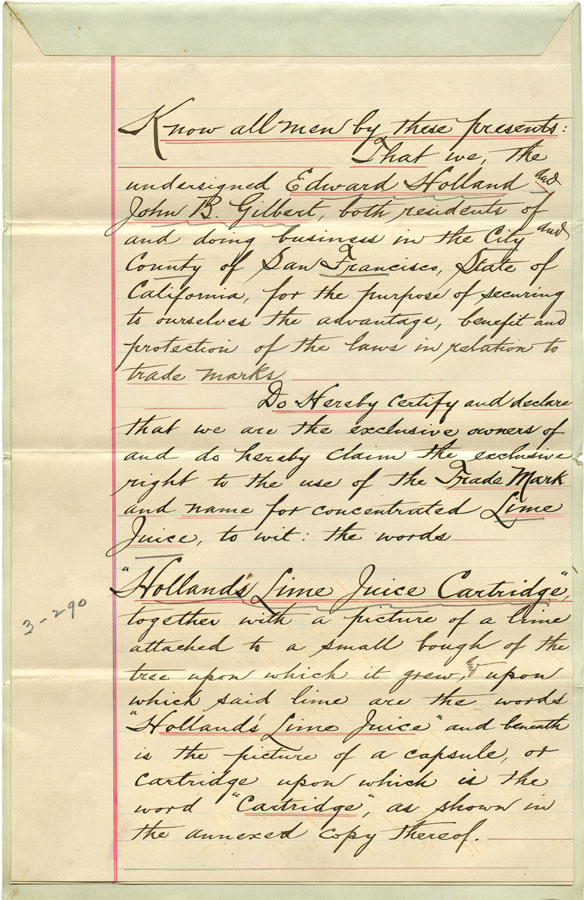 Know all men by these presents:
That we, the
undersigned Edward Holland and
John B. Gilbert, both residents of
and doing business in the City and
County of San Francisco, State of
California, for the purpose of securing
to ourselves the advantage, benefit and
protection of the laws in relation to
trade marks
Do Hereby Certify and declare
that we are the exclusive owners of
and do hereby claim the exclusive
right to the use of the Trade Mark
and name for concentrated Lime
Juice, to wit: the words
"Holland's Lime Juice Cartridge",
together with a picture of a lime
3-290
attached to a small bough of the
tree upon which it grew, upon
which said lime are the words
"Holland's Lime Juice" and beneath
is the picture of a capsule, or
cartridge upon which is the
word "Cartridge", as shown in
the annexed copy thereof.